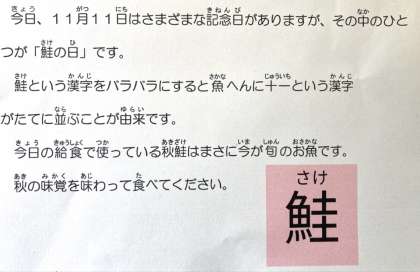 今日、１１月１１日はさまざまな記念日がありますが、その中のひと
つが「鮭の日」です。
鮭という漢字をバラバラにすると魚へんに十一という漢字
がたてに並ぶことが由来です。
今日の給食で使っている秋鮭はまさに今が旬のお魚です。
秋の味覚を味わって食べてください。
さけ
鮭